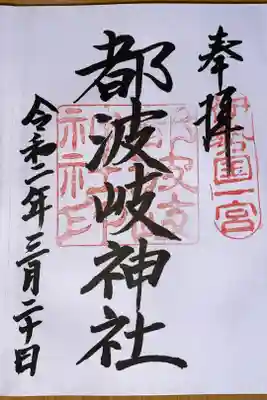 奉拝
伊勢国一宮
都波岐神社
令和二年三月二十日